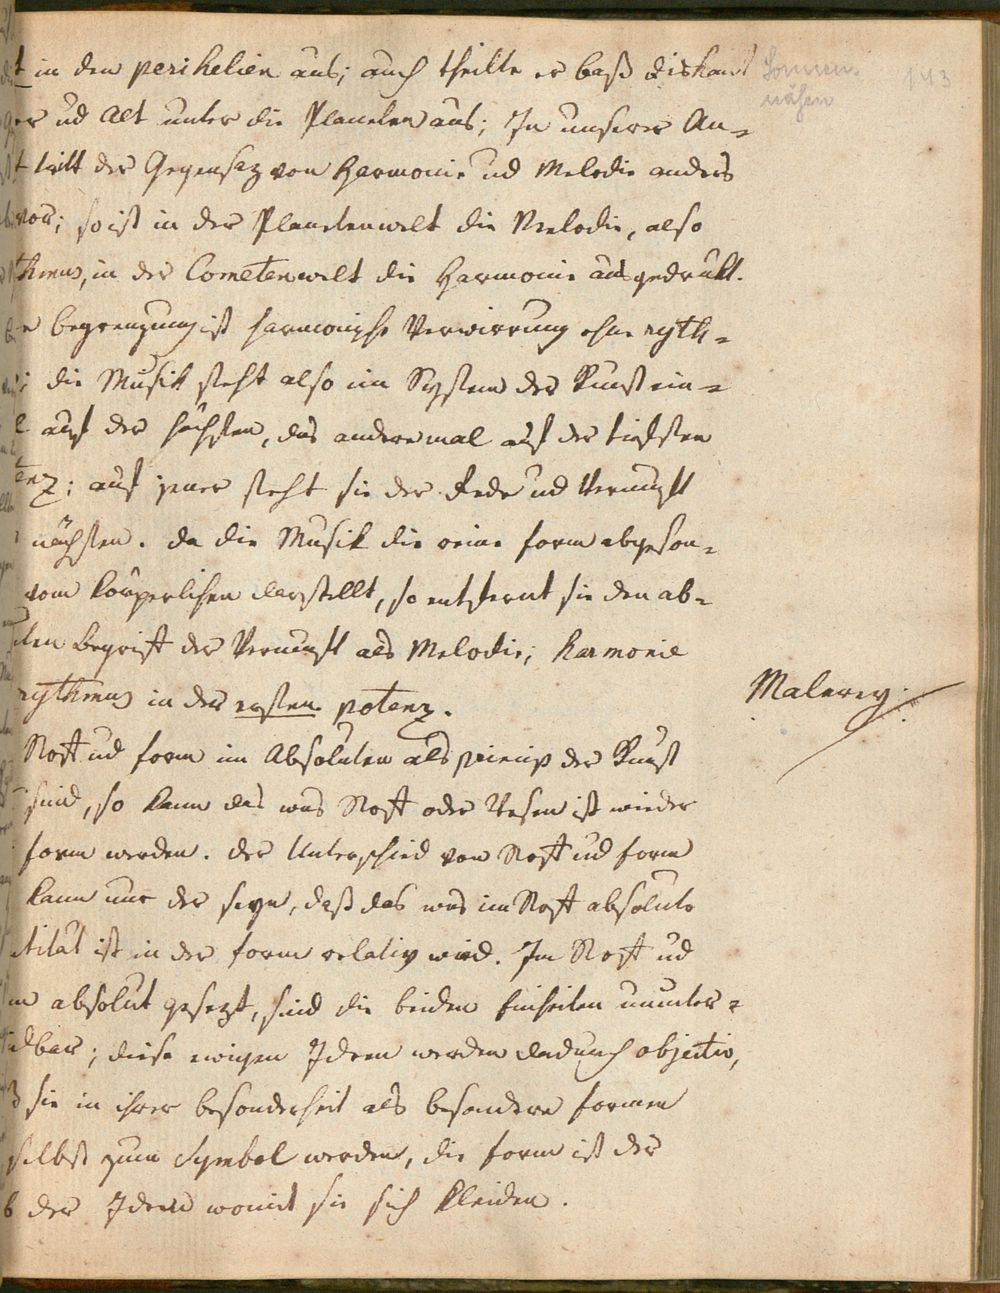 t in den perihelien aus; auch theilte er baß diskant
Sonnen-
nähen
143
er ud Alt unter die Planeten aus; In unserer An-
t tritt der Gegensaz von Harmonie ud Melodie anders
vor; so ist in der Planetenwelt die Melodie, also
thmus, in der Cometenwelt die Harmonie ausgedrukt.
e begrenzung ist harmonische Verwirrung ohne ryth-
; die Musik steht also im System der Kunst ein-
l auf der höchsten, das andere mal auf der tiefsten
enz; auf jener steht sie der Rede ud Vernunft
nächsten. da die Musik die reine form abgeson-
vom körperlichen darstellt, so entfernt sie den ab-
ten begriff der Vernunft als Melodie; harmonie
rythmus in der ersten potenz.
Malerey.
Stoff ud form im Absoluten als princip der Kunst
sind, so kann das was Stoff oder Wesen ist wieder
form werden. der Unterschied von Stoff ud form
kann nur der seyn, daß das was im Stoff absolute
ntität ist in der form relativ wird. Im Stoff ud
m absolut gesezt, sind die beiden Einheiten ununter-
dbar; diese ewigen Ideen werden dadurch objectiv,
ß sie in ihrer besonderheit als besondere formen
selbst zum Symbol werden, die form ist der
b der Ideen womit sie sich kleiden.